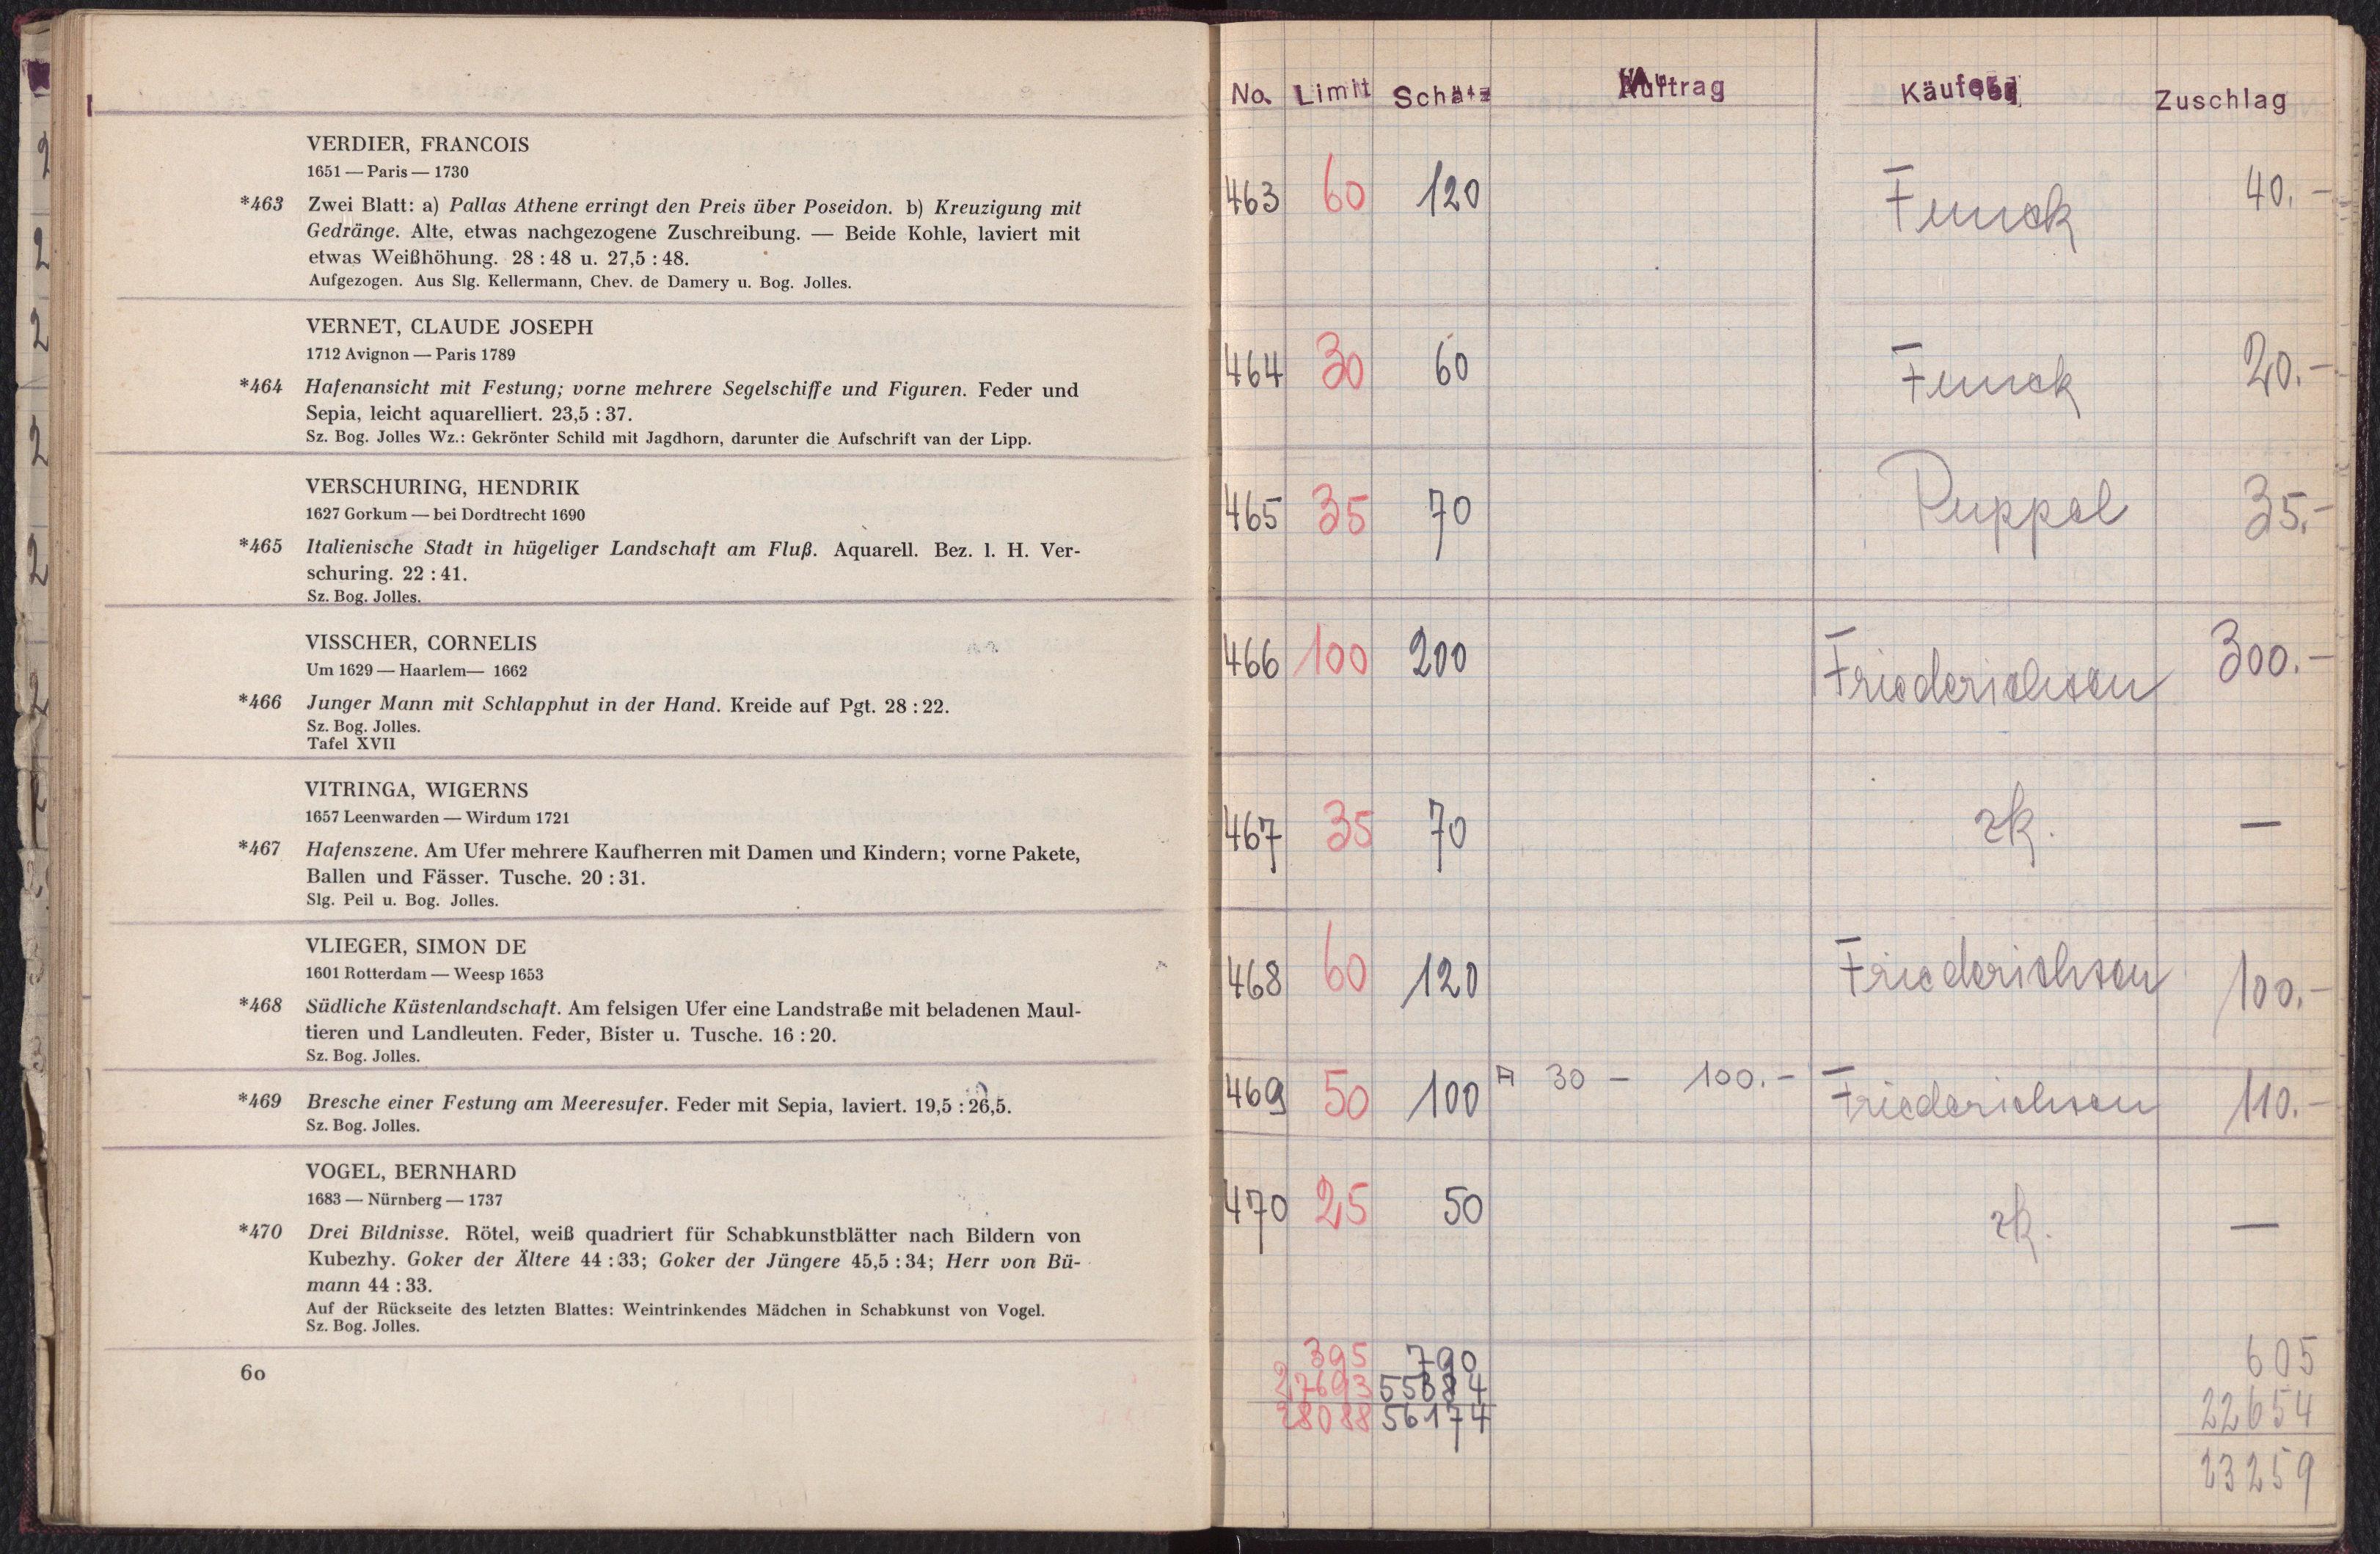 VERDIER, FRANCOIS
1651 — Paris — 1730
*463 Zwei Blatt: a) Pallas Athene erringt den Preis über Poseidon. b) Kreuzigung mit
Gedränge. Alte, etwas nachgezogene Zuschreibung. — Beide Kohle, laviert mit
etwas Weißhöhung. 28 : 48 u. 27,5 : 48.
Aufgezogen. Aus Slg. Kellermann, Chev. de Damery u. Bog. Jolles.
VERNET, CLAUDE JOSEPH
1712 Avignon — Paris 1789
*464 Hafenansicht mit Festung; vorne mehrere Segelschiffe und Figuren. Feder und
Sepia, leicht aquarelliert. 23,5 : 37.
Sz. Bog. Jolles Wz.: Gekrönter Schild mit Jagdhorn, darunter die Aufschrift van der Lipp.
VERSCHURING, HENDRIK
1627 Gorkum — bei Dordtrecht 1690
*465 Italienische Stadt in hügeliger Landschaft am Fluß. Aquarell. Bez. l. H. Ver-
schuring. 22 : 41.
Sz. Bog. Jolles.
VISSCHER, CORNELIS
Um 1629 — Haarlem— 1662
*466 Junger Mann mit Schlapphut in der Hand. Kreide auf Pgt. 28 : 22.
Sz. Bog. Jolles.
Tafel XVII
VITRINGA, WIGERNS
1657 Leenwarden — Wirdum 1721
*467 Hafenszene. Am Ufer mehrere Kaufherren mit Damen und Kindern; vorne Pakete,
Ballen und Fässer. Tusche. 20 : 31.
Slg. Peil u. Bog. Jolles.
VLIEGER, SIMON DE
1601 Rotterdam — Weesp 1653
*468 Südliche Küstenlandschaft. Am felsigen Ufer eine Landstraße mit beladenen Maul-
tieren und Landleuten. Feder, Bister u. Tusche. 16 : 20.
Sz. Bog. Jolles.
*469 Bresche einer Festung am Meeresufer. Feder mit Sepia, laviert. 19,5 : 26,5.
Sz. Bog. Jolles.
VOGEL, BERNHARD
1683 — Nürnberg — 1737
*470 Drei Bildnisse. Rötel, weiß quadriert für Schabkunstblätter nach Bildern von
Kubezhy. Goker der Ältere 44 : 33; Goker der Jüngere 45,5 : 34; Herr von Bü-
mann 44 : 33.
Auf der Rückseite des letzten Blattes: Weintrinkendes Mädchen in Schabkunst von Vogel.
Sz. Bog. Jolles.
60
No. Limit Schätz Auftrag Käufer Zuschlag
463 60 120 Funck 40.-
464 30 60 Funck 20.-
465 35 70 Puppel 35.-
466 100 200 Friederichsen 300.-
467 35 70 zk. —
468 60 120 Friederichsen 100.-
469 50 100 A 30 - 100.- Friederichsen 110.-
470 25 50 zk. —
395 790 605
27693 55384 22654
28088 56174 23259